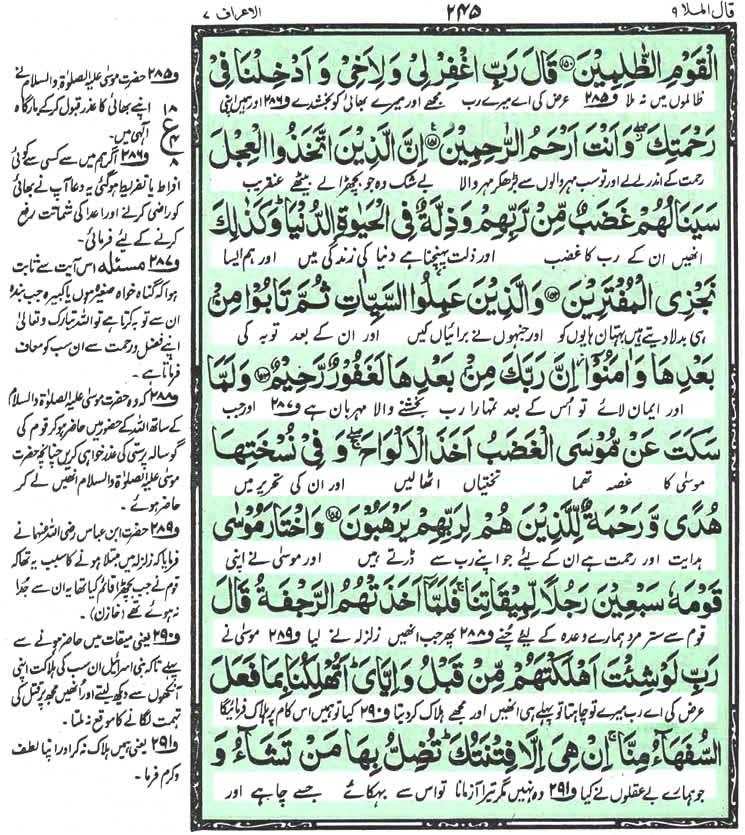 قال الملا ۹
۲۴۵
الاعراف ۷
الْقَوْمِ الظّٰلِمِيْنَ ۝۱۵۰ قَالَ رَبِّ اغْفِرْ لِيْ وَلِاَخِيْ وَاَدْخِلْنَا فِيْ
ظالموں میں نہ ملا ف۲۸۵ عرض کی اے میرے رب مجھے اور میرے بھائی کو بخش دے ف۲۸۶ اور ہمیں اپنی
رَحْمَتِكَ ۖ وَاَنْتَ اَرْحَمُ الرّٰحِمِيْنَ ۝۱۵۱ اِنَّ الَّذِيْنَ اتَّخَذُوا الْعِجْلَ
رحمت کے اندر لے لے اور تو سب مہر والوں سے بڑھ کر مہر والا بے شک وہ جو بچھڑا لے بیٹھے عنقریب
سَيَنَالُهُمْ غَضَبٌ مِّنْ رَّبِّهِمْ وَذِلَّةٌ فِي الْحَيٰوةِ الدُّنْيَا ۚ وَكَذٰلِكَ
انھیں ان کے رب کا غضب اور ذلت پہنچنا ہے دنیا کی زندگی میں اور ہم ایسا
نَجْزِي الْمُفْتَرِيْنَ ۝۱۵۲ وَالَّذِيْنَ عَمِلُوا السَّيِّاٰتِ ثُمَّ تَابُوْا مِنْۢ
ہی بدلا دیتے ہیں بہتان ہایوں کو اور جنہوں نے برائیاں کیں اور ان کے بعد توبہ کی
بَعْدِهَا وَاٰمَنُوْۤا اِنَّ رَبَّكَ مِنْۢ بَعْدِهَا لَغَفُوْرٌ رَّحِيْمٌ ۝۱۵۳ وَلَمَّا
اور ایمان لائے تو اس کے بعد تمہارا رب بخشنے والا مہربان ہے ف۲۸۷ اور جب
سَكَتَ عَنْ مُّوْسَى الْغَضَبُ اَخَذَ الْاَلْوَاحَ ۖ وَفِيْ نُسْخَتِهَا
موسٰی کا غصہ تھما تختیاں اٹھا لیں اور ان کی تحریر میں
هُدًى وَّرَحْمَةٌ لِّلَّذِيْنَ هُمْ لِرَبِّهِمْ يَرْهَبُوْنَ ۝۱۵۴ وَاخْتَارَ مُوْسٰى
ہدایت اور رحمت ہے ان کے لیئے جو اپنے رب سے ڈرتے ہیں اور موسٰی نے اپنی
قَوْمَهٗ سَبْعِيْنَ رَجُلًا لِّمِيْقَاتِنَا ۚ فَلَمَّاۤ اَخَذَتْهُمُ الرَّجْفَةُ قَالَ
قوم سے ستر مرد ہمارے وعدہ کے لیئے چنے ف۲۸۸ پھر جب انھیں زلزلہ نے لیا ف۲۸۹ موسٰی نے
رَبِّ لَوْ شِئْتَ اَهْلَكْتَهُمْ مِّنْ قَبْلُ وَاِيَّايَ ۖ اَتُهْلِكُنَا بِمَا فَعَلَ
عرض کی اے رب میرے تو چاہتا تو پہلے ہی انھیں اور مجھے ہلاک کر دیتا ف۲۹۰ کیا تو ہمیں اس کام پر ہلاک فرمائیگا
السُّفَهَآءُ مِنَّا ۚ اِنْ هِيَ اِلَّا فِتْنَتُكَ ۖ تُضِلُّ بِهَا مَنْ تَشَآءُ وَ
جو ہمارے بے عقلوں نے کیا ف۲۹۱ وہ نہیں مگر تیرا آزمانا تو اس سے بہکائے جسے چاہے اور
ف۲۸۵ حضرت موسیٰ علیہ الصلوٰۃ والسلام نے
۱۸ اپنے بھائی کا عذر قبول کر کے بارگاہ
ع ۴ الٰہی میں۔
۸ ف۲۸۶ اگر ہم میں سے کسی سے کوئی
افراط یا تفریط ہو گئی یہ دعا آپ نے بھائی
کو راضی کرنے اور اعدا کی شماتت رفع
کرنے کے لیئے فرمائی۔
ف۲۸۷ مسئلہ اس آیت سے ثابت
ہوا کہ گناہ خواہ صغیرہ ہوں یا کبیرہ جب بندہ
ان سے توبہ کرتا ہے تو اللہ تبارک وتعالیٰ
اپنے فضل ورحمت سے ان سب کو معاف
فرماتا ہے۔
ف۲۸۸ کہ وہ حضرت موسیٰ علیہ الصلوٰۃ والسلام
کے ساتھ اللہ کے حضور میں حاضر ہو کر قوم کی
گوسالہ پرستی کی عذر خواہی کریں چنانچہ حضرت
موسیٰ علیہ الصلوٰۃ والسلام انھیں لے کر
حاضر ہوئے۔
ف۲۸۹ حضرت ابن عباس رضی اللہ عنہما نے
فرمایا کہ زلزلہ میں مبتلا ہونے کا سبب یہ تھا کہ
قوم نے جب بچھڑا قائم کیا تھا یہ ان سے جدا
نہ ہوئے تھے (خازن)۔
ف۲۹۰ یعنی میقات میں حاضر ہونے سے
پہلے تاکہ بنی اسرائیل ان سب کی ہلاکت اپنی
آنکھوں سے دیکھ لیتے اور انھیں مجھ پر قتل کی
تہمت لگانے کا موقع نہ ملتا۔
ف۲۹۱ یعنی ہمیں ہلاک نہ کر اور اپنا لطف
وکرم فرما۔